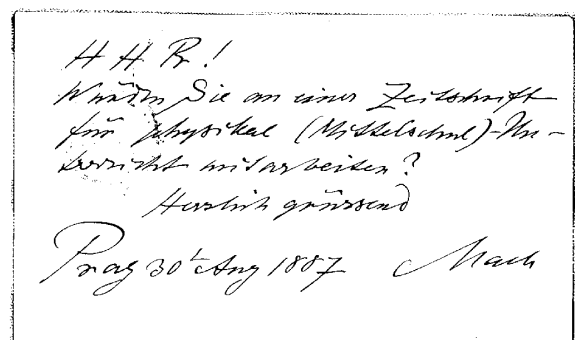 H H Pr!
Würden Sie an einer Zeitschrift
für physikal (Mittelschul)-Un-
terricht mitarbeiten?
Herzlich grüssend
Prag 30t Aug 1887 Mach